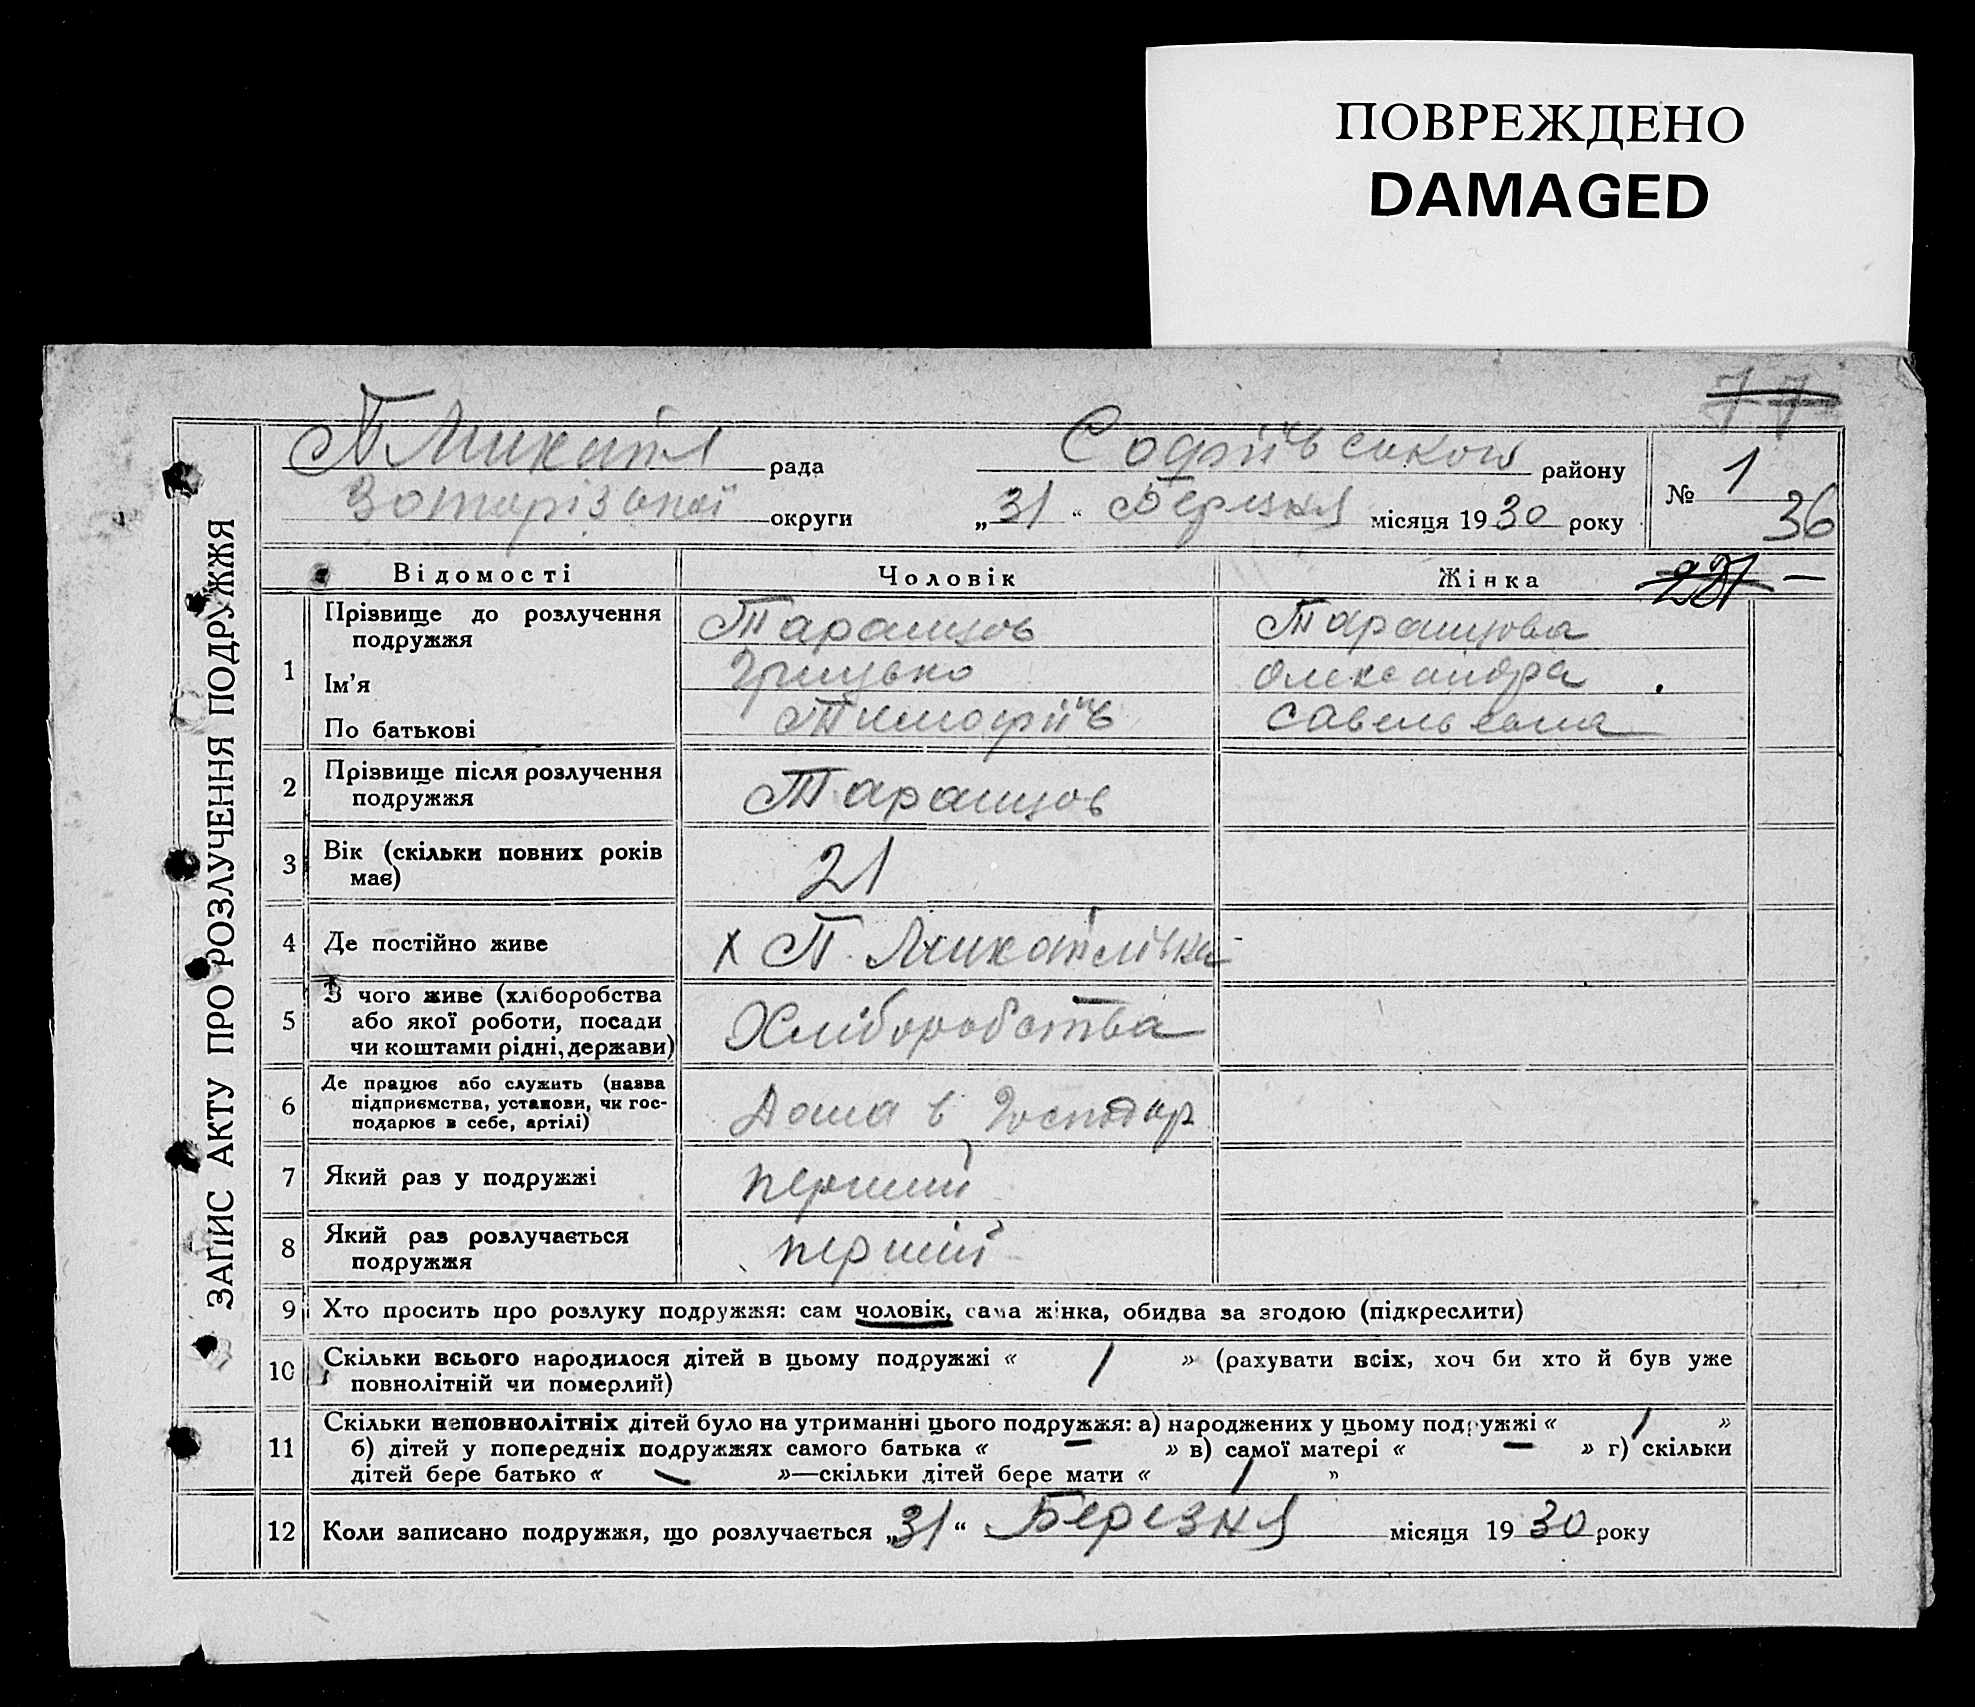 ПОВРЕЖДЕНО
DAMAGED
77
П Микайл рада Софіївськои району № 1
округи „31“ Березня місяця 1930 року 36
Відомості Чоловік Жінка 221 —
ЗАПИС АКТУ ПРО РОЗЛУЧЕННЯ ПОДРУЖЖЯ
1 Прізвище до розлучення подружжя Таранцов Таранцова
Ім'я Грицько Олександра
По батькові Тимофіїв Савельевна
2 Прізвище після розлучення
подружжя Таранцов
3 Вік (скільки повних років
має) 21
4 Де постійно живе х П. Микайлівка
5 З чого живе (хліборобства
або якої роботи, посади
чи коштами рідні, держави) Хліборобства
6 Де працює або служить (назва
підприємства, установи, чи гос-
подарює в себе, артілі) Дома в Господар
7 Який раз у подружжі перший
8 Який раз розлучається
подружжя перший
9 Хто просить про розлуку подружжя: сам чоловік, сама жінка, обидва за згодою (підкреслити)
10 Скільки всього народилося дітей в цьому подружжі « 1 » (рахувати всіх, хоч би хто й був уже
повнолітній чи померлий)
11 Скільки неповнолітніх дітей було на утриманні цього подружжя: а) народжених у цьому подружжі « 1 »
б) дітей у попередніх подружжях самого батька « — » в) самої матері « — » г) скільки
дітей бере батько « — »—скільки дітей бере мати « 1 »
12 Коли записано подружжя, що розлучається „31“ Березня місяця 1930 року